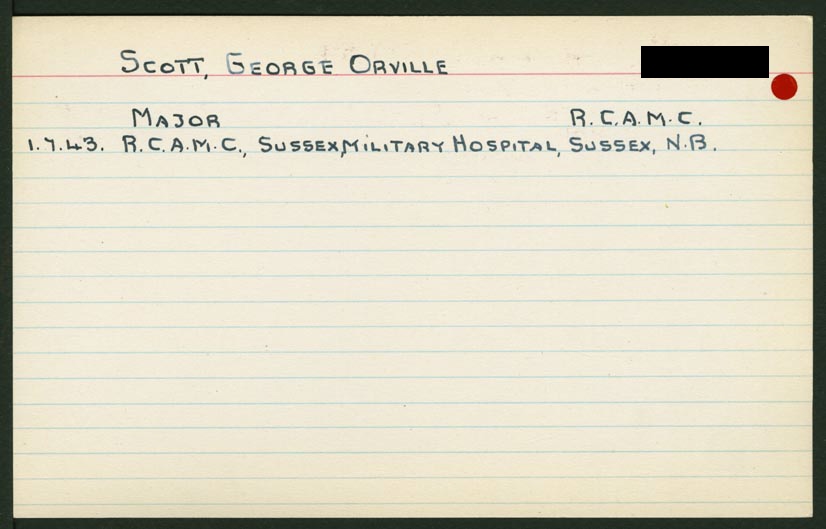 SCOTT, GEORGE ORVILLE
MAJOR R.C.A.M.C.
1.7.43. R.C.A.M.C., SUSSEX, MILITARY HOSPITAL, SUSSEX, N.B.